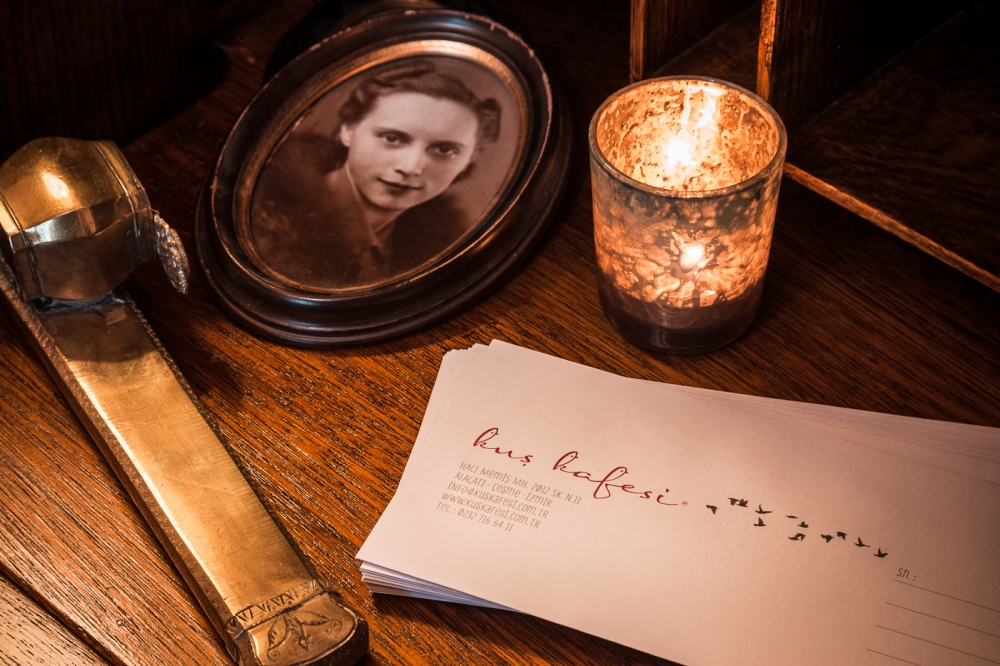 kuş kafesi
HACI MEMİŞ MH. 2012 SK. N.11
ALAÇATI - ÇEŞME - İZMİR
INFO@KUSKAFESI.COM.TR
WWW.KUSKAFESI.COM.TR
TEL.: 0232 716 64 11
Sn.: